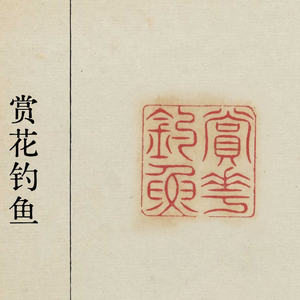 赏花钓鱼
賞花
釣魚